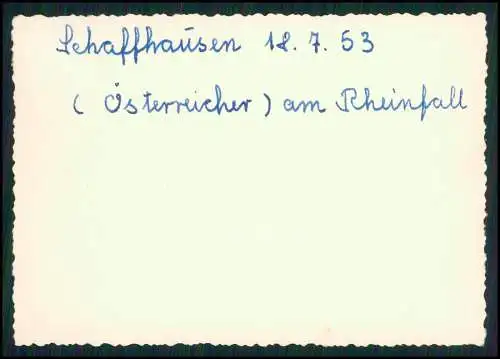 Schaffhausen 18. 7. 53
( Österreicher ) am Rheinfall